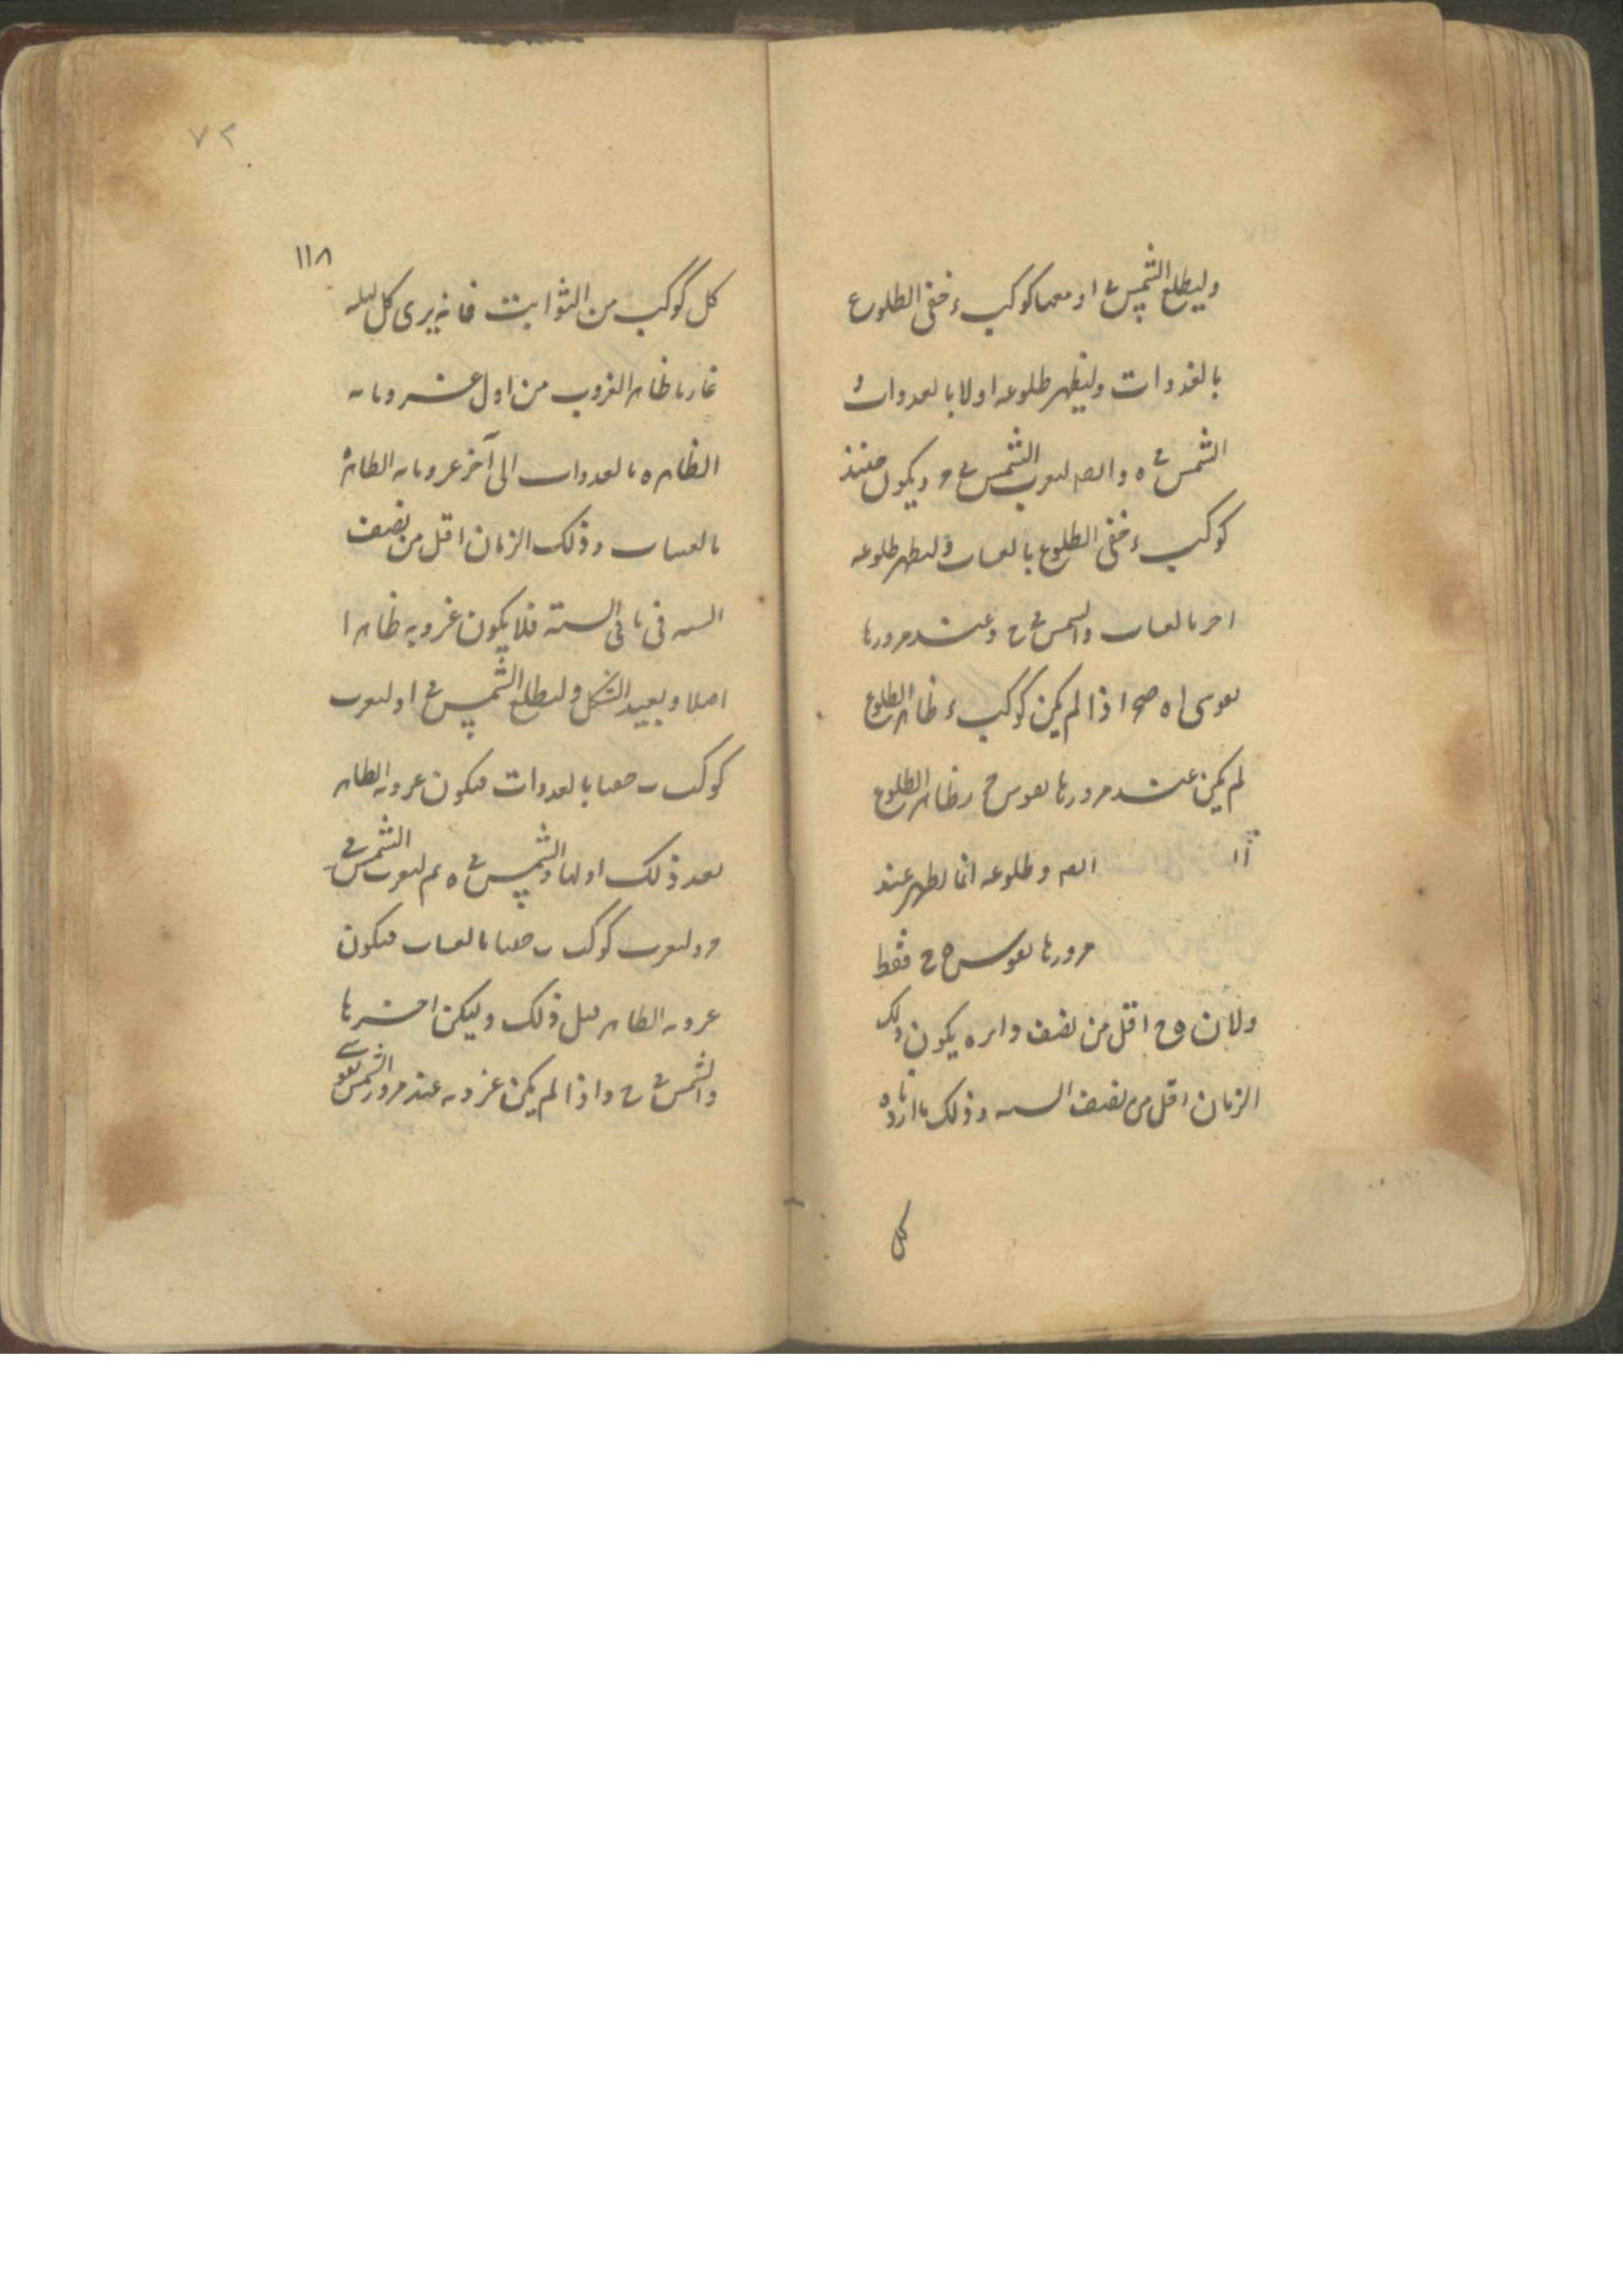 وليطلع الشمس ع او معها كوكب ء خفى الطلوع
بالغدوات وليظهر طلوعه اولا بالعدوات و
الشمس فى ه والصا لىعرب الشمس فى ح ويكون حينئذ
كوكب ء خفى الطلوع بالعسات ولىطهر طلوعه
احرىا لعسات والسمس فى ح وعند مرورها
اذا لم يكن كوكب ء ظاهر الطلوع
لم يكن عند مرورها بقوس ح ر ظاهر الطلوع
الصا وطلوعه انما يظهر عند
مرورها بقوس ه ح فقط
ولان ه ح اقل من نصف دايره يكون ذلك
الزمان اقل من نصف السنه وذلك ما اردناه
كل
٧٢
١١٨
كل كوكب من الثوابت فانه يرى كل ليله
غاربا ظاهر الغروب من اول غروباته
الظاهره بالعدوات الى آخر غروباته الظاهره
بالعسات وذلك الزمان اقل من نصف
السنه فى باقى السنة فلا يكون غروبه ظاهرا
اصلا وبعيد الشكل وليطلع الشمس فى ا وليغرب
كوكب ب معها بالعدوات فيكون غروبه الظاهر
بعد ذلك اولها والشمس فى ه ثم ليغرب الشمس فى
ح وليغرب كوكب ب معها بالعسات فيكون
غروبه الظاهر قبل ذلك وليكن اخرها
والشمس فى ح واذا لم يكن غروبه عند مرور الشمس بقوسى